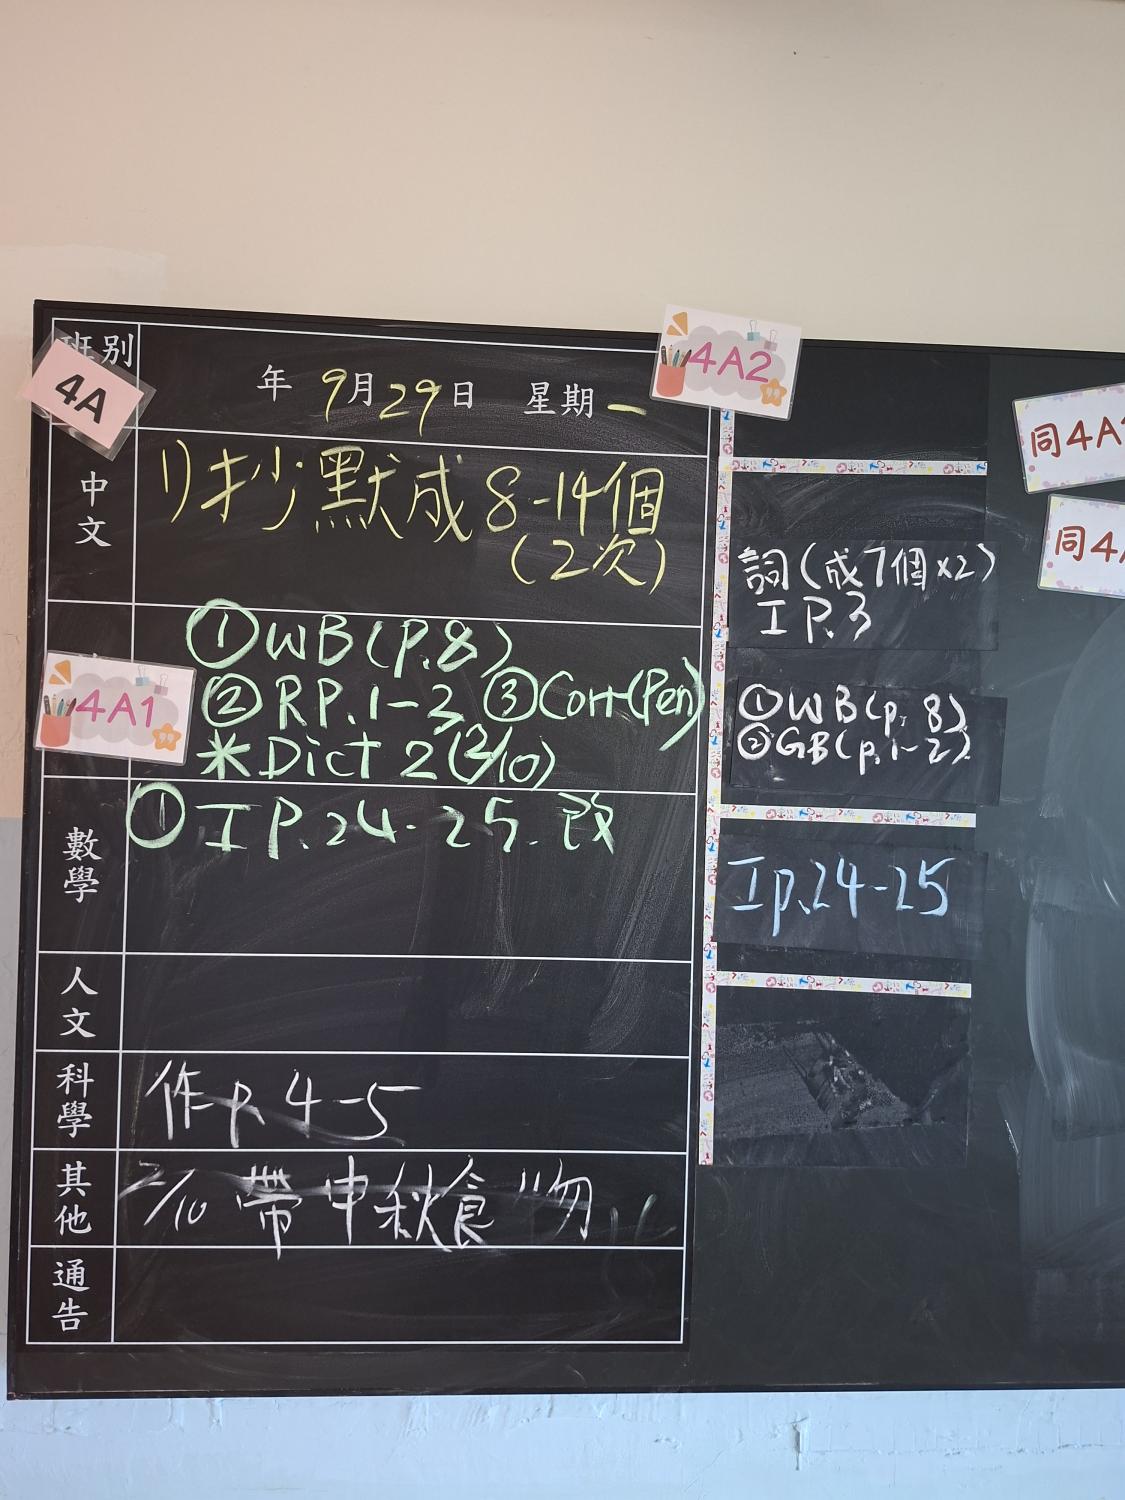 班別
4A
年 9月29日 星期一
中文
1)抄默成8-14個
(2次)
4A1
①WB(P.8)
②RP.1-3 ③Corr(Pen)
*Dict 2(2/10)
數學
①工P.24-25.改
人文
科學
作p.4-5
其他
2/10 帶中秋食物
通告
4A2
詞(成7個x2)
工P.3
①WB(p.8)
②GB(p.1-2)
工p.24-25
同4A
同4A